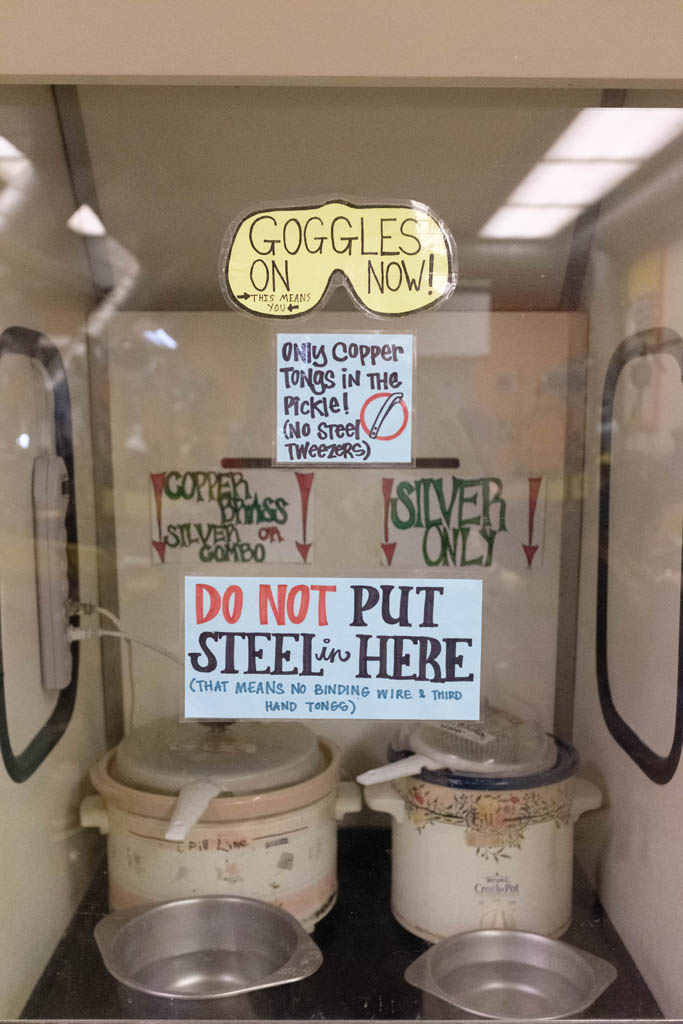 GOGGLES
ON NOW!
THIS MEANS
YOU
ONLY COPPER
TONGS IN THE
PICKLE!
(NO STEEL
TWEEZERS)
COPPER
BRASS
SILVER OR
COMBO
SILVER
ONLY
DO NOT PUT
STEEL in HERE
(THAT MEANS NO BINDING WIRE & THIRD
HAND TONGS)
Fill Line
Fill
Crock-Pot